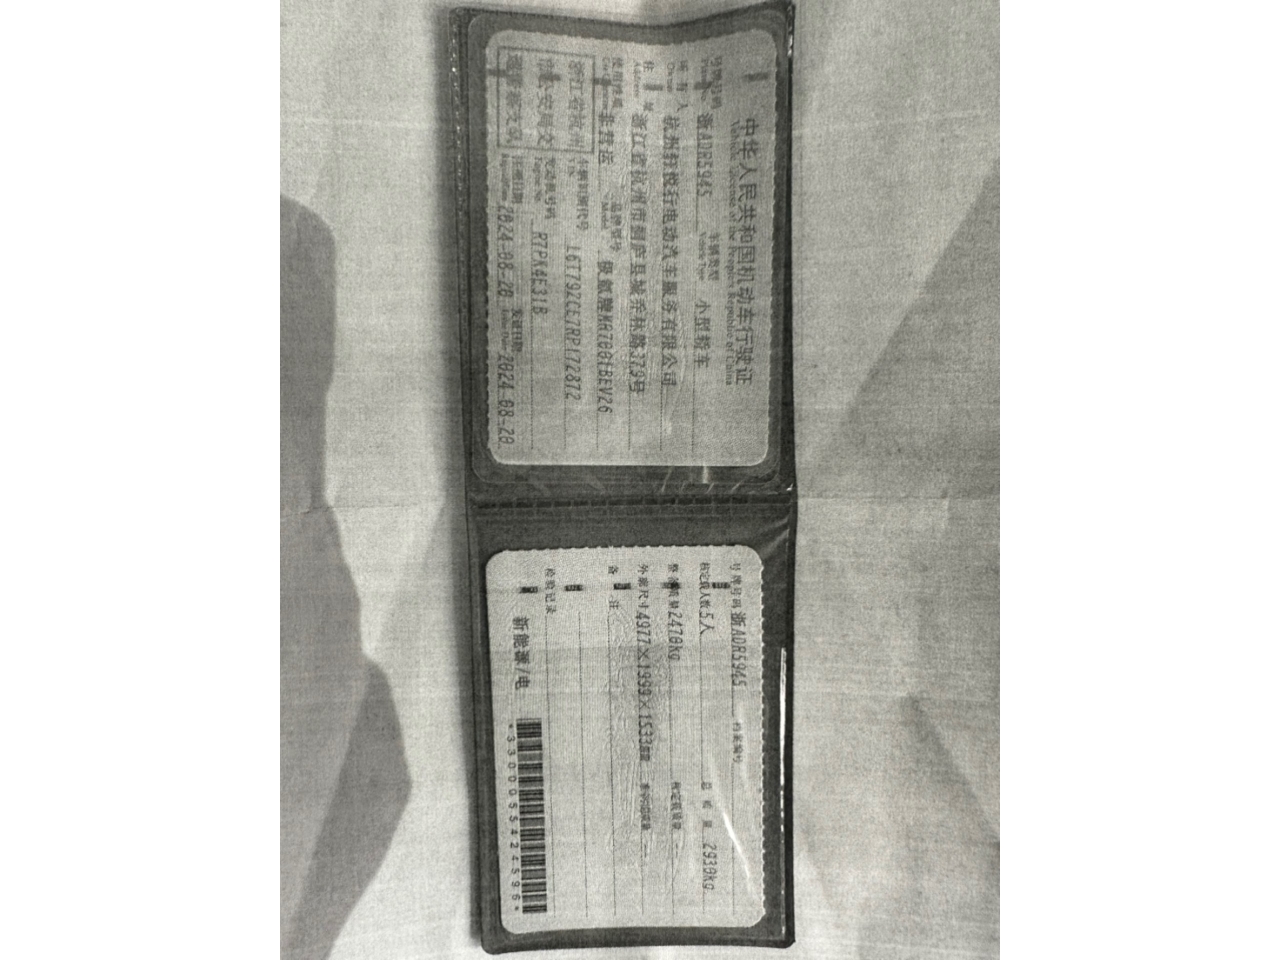 中华人民共和国机动车行驶证
Vehicle License of the People's Republic of China
号牌号码 浙ADR5945 车辆类型 小型轿车
Plate No. Vehicle Type
所有人 杭州轩悦行电动汽车服务有限公司
Owner
住址 浙江省杭州市桐庐县城乔林路379号
Address
使用性质 非营运 品牌型号 极氪牌MR7001BEV26
Model
浙江省杭州
市公安局交
通警察支队
车辆识别代号 L6T792CE7RP172872
VIN
发动机号码 R7PK4E31B
Engine No.
注册日期 2024-08-20 发证日期 2024-08-20
Issue Date
号牌号码 浙ADR5945 档案编号
核定载人数 5人 总质量 2930kg
整备质量 2470kg 核定载质量 --
外廓尺寸 4977×1999×1533mm 准牵引总质量 --
备注
检验记录
新能源/电
*3300055424596*